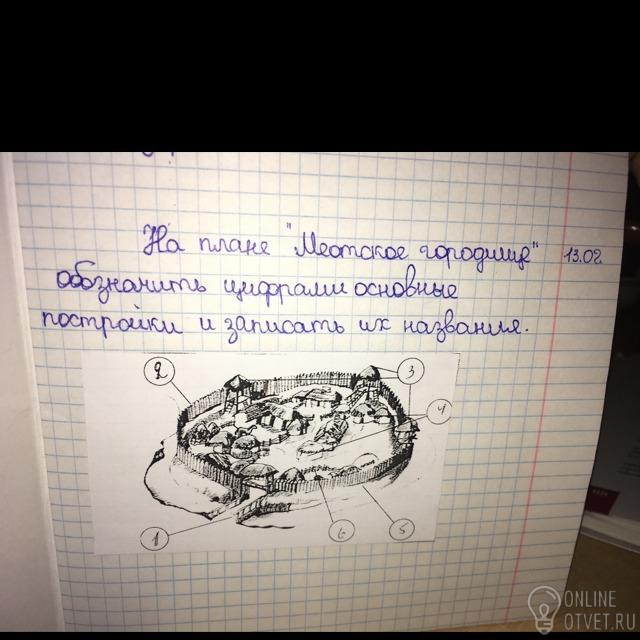 На плане "Меотское городище" 13.02
обозначить цифрами основные
постройки и записать их названия.
2
3
4
1
6
5
ONLINE
OTVET.RU